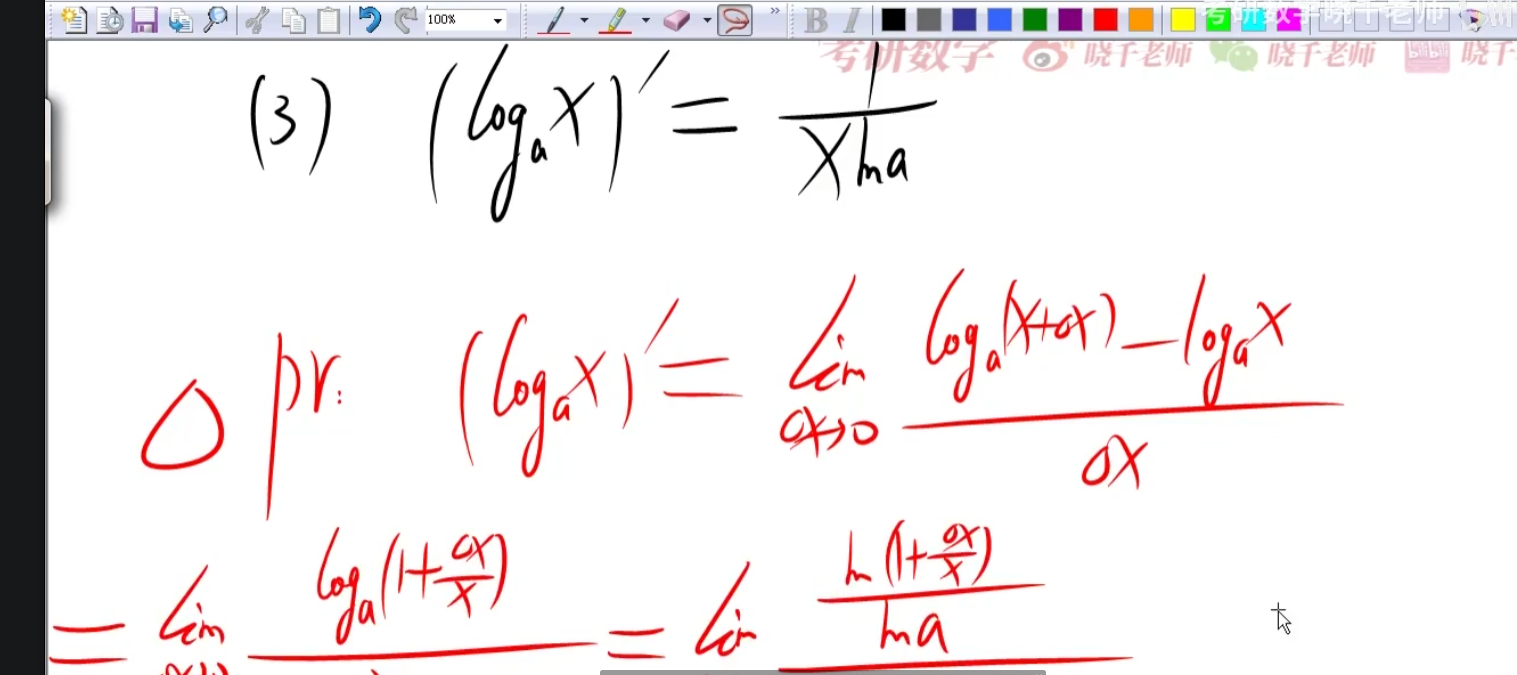 100%
B I
考研数学晓千老师
考研数学 晓千老师 晓千老师 晓千
(3) (log_a x)′ = 1/(x ln a)
pr: (log_a x)′ = lim_{Δx→0} (log_a(x+Δx) − log_a x)/Δx
= lim log_a(1+Δx/x) = lim ln(1+Δx/x)/ln a